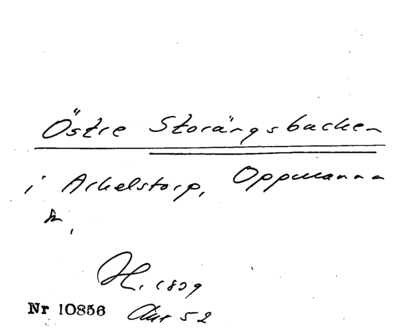 Östre Storängsbacken
i Arkelstorp, Oppmanna
sn,
H. 1839
Nr 10856